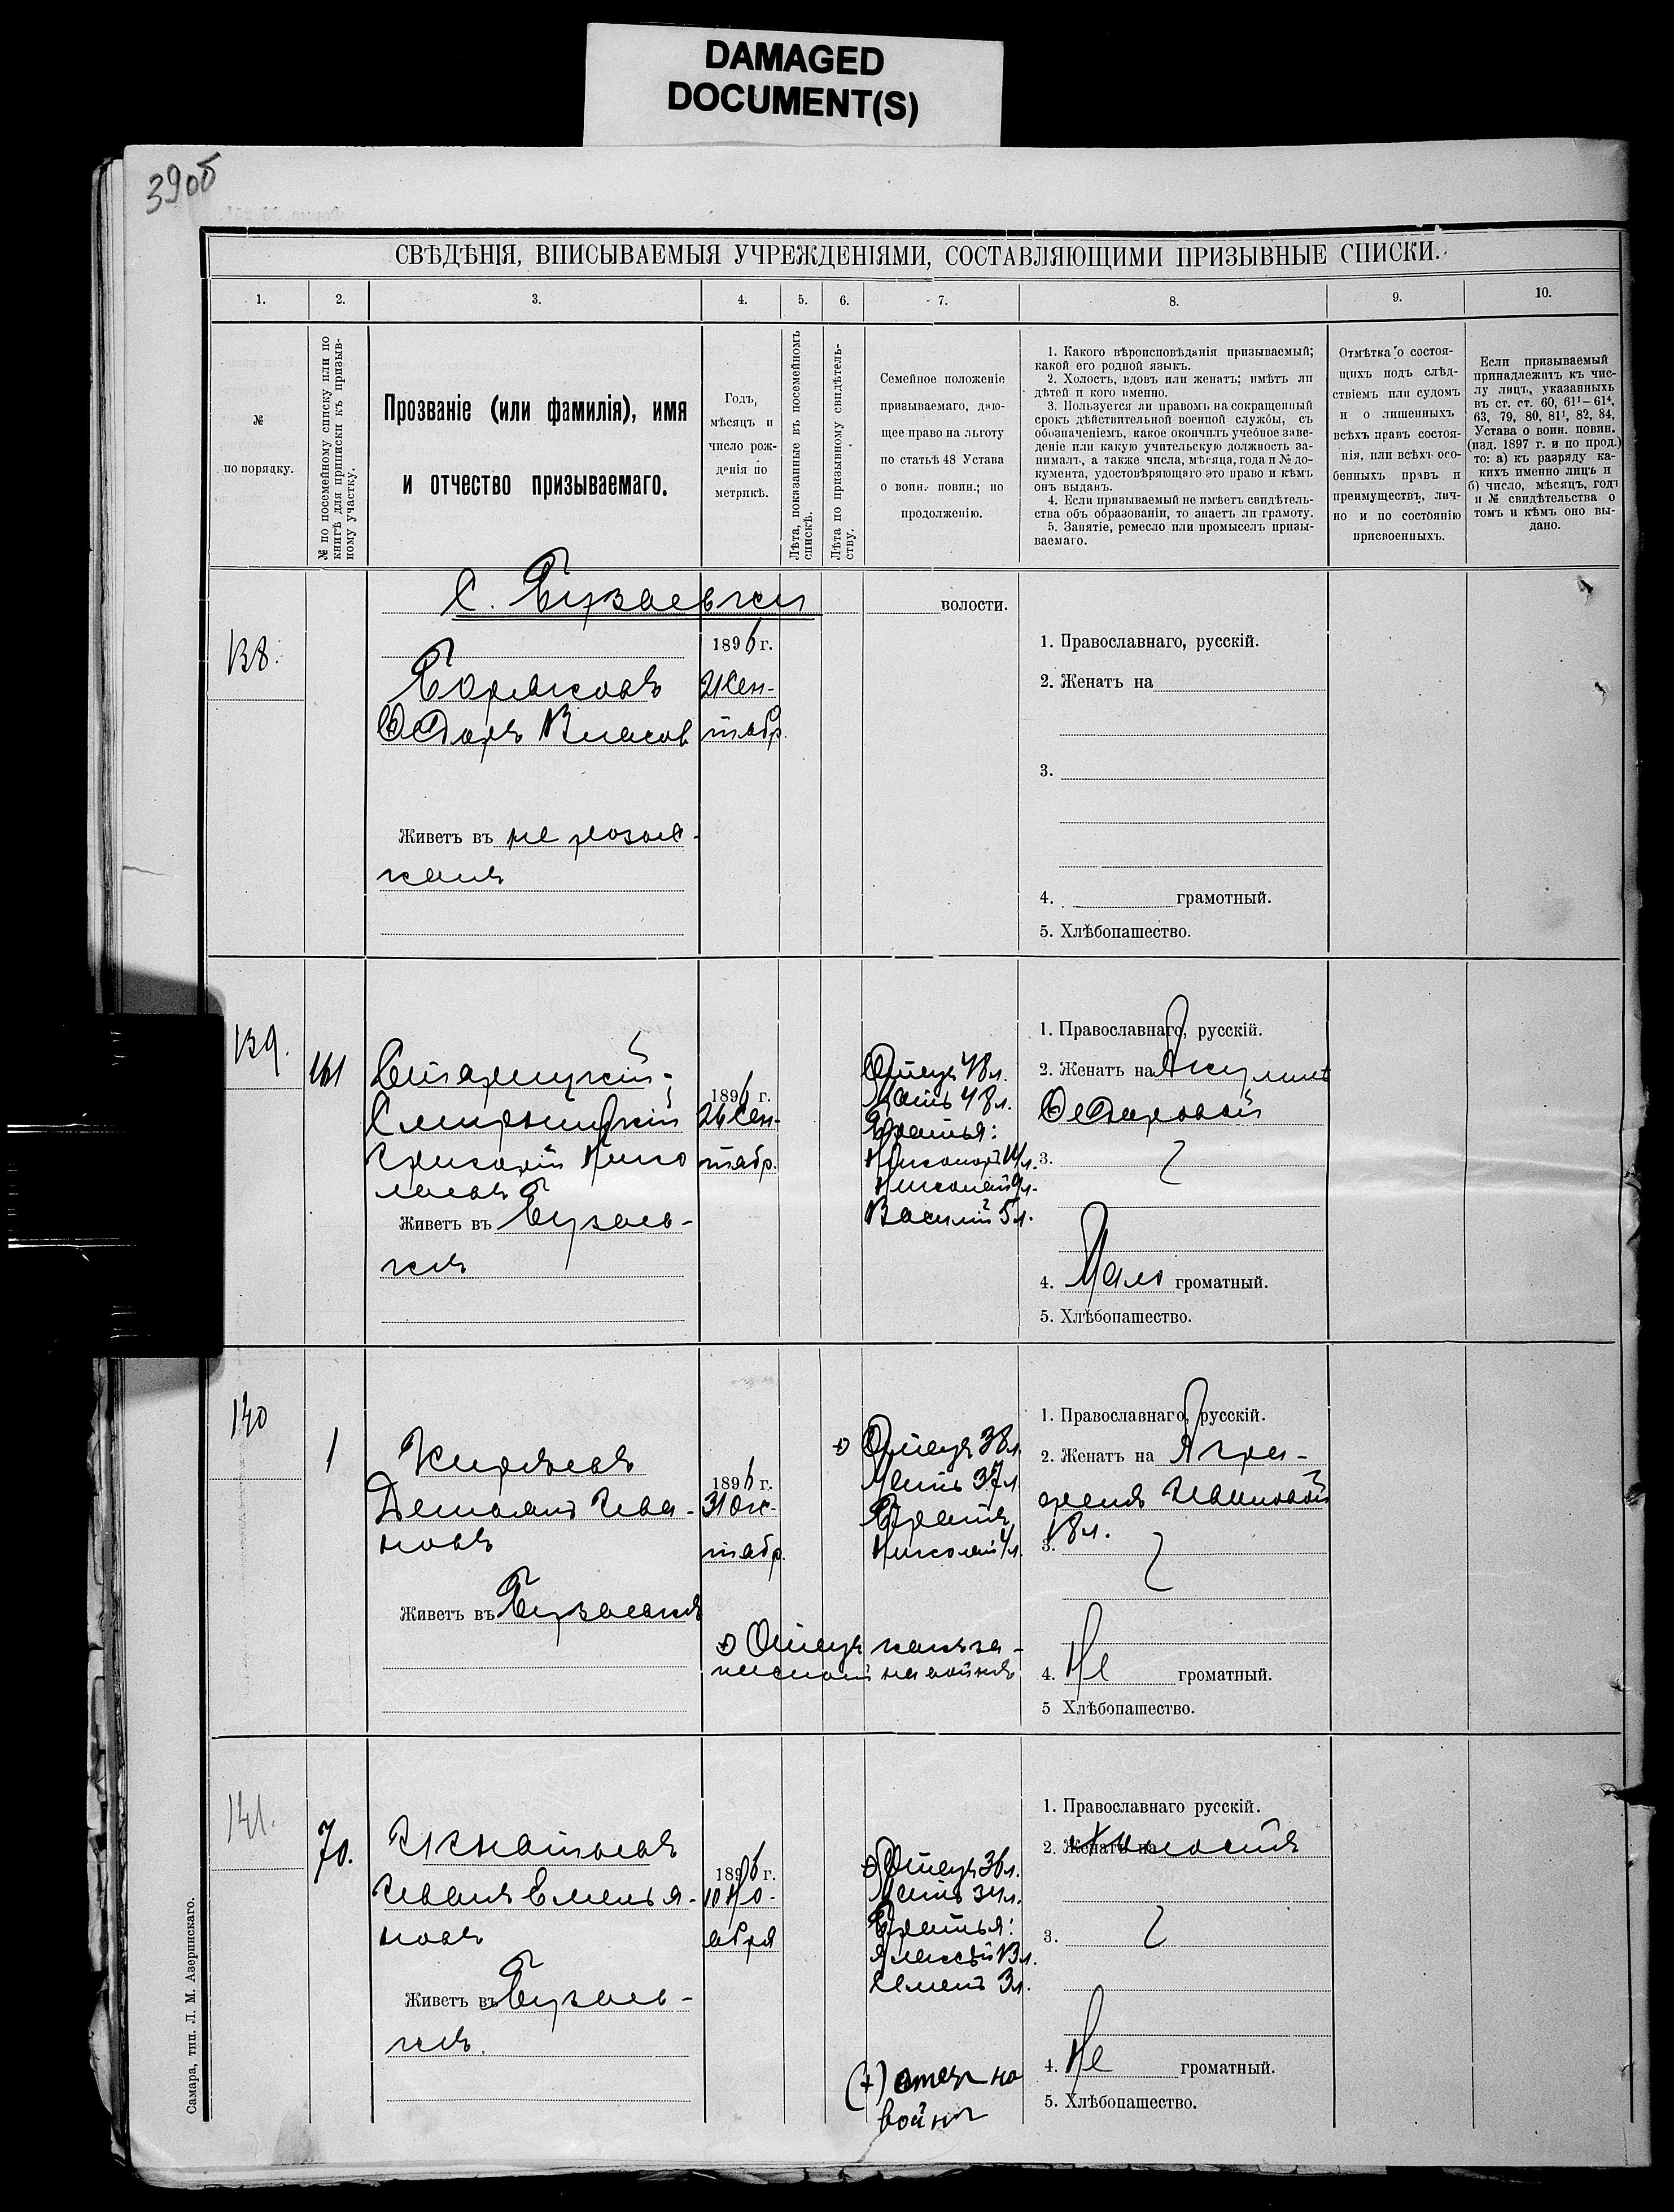 DAMAGED
DOCUMENT(S)
39об
СВѢДѢНІЯ, ВПИСЫВАЕМЫЯ УЧРЕЖДЕНІЯМИ, СОСТАВЛЯЮЩИМИ ПРИЗЫВНЫЕ СПИСКИ.
1.
2.
3.
4.
5.
6.
7.
8.
9.
10.
№
по порядку.
№ по посемейному списку или по
книгѣ для приписки къ призыв-
ному участку.
Прозваніе (или фамилія), имя
и отчество призываемаго.
Годъ,
мѣсяцъ и
число рож-
денія по
метрикѣ.
Лѣта, показанные въ посемейномъ
спискѣ.
Лѣта по призывному свидѣтель-
ству.
Семейное положеніе
призываемаго, даю-
щее право на льготу
по статьѣ 48 Устава
о воин. повин.; по
продолженію.
1. Какого вѣроисповѣданія призываемый;
какой его родной языкъ.
2. Холостъ, вдовъ или женатъ; имѣтъ ли
дѣтей и кого именно.
3. Пользуется ли правомъ на сокращенный
срокъ дѣйствительной военной службы, съ
обозначеніемъ, какое окончилъ учебное заве-
деніе или какую учительскую должность за-
нималъ, а также числа, мѣсяца, года и № до-
кумента, удостовѣряющаго это право и кѣмъ
онъ выданъ.
4. Если призываемый не имѣетъ свидѣтель-
ства объ образованіи, то знаетъ ли грамоту.
5. Занятіе, ремесло или промыселъ призы-
ваемаго.
Отмѣтка о состоя-
щихъ подъ слѣд-
ствіемъ или судомъ
и о лишенныхъ
всѣхъ правъ состоя-
нія, или всѣхъ осо-
бенныхъ правъ и
преимуществъ, лич-
но и по состоянію
присвоенныхъ.
Если призываемый
принадлежитъ къ чис-
лу лицъ, указанныхъ
въ ст. ст. 60, 61¹—61⁴,
63, 79, 80, 81¹, 82, 84,
Устава о воин. повин.
(изд. 1897 г. и по прод.)
то: а) къ разряду ка-
кихъ именно лицъ и
б) число, мѣсяцъ, годъ
и № свидѣтельства о
томъ и кѣмъ оно вы-
дано.
С. Бузаевки
волости.
138.
Борисовъ
Ѳедоръ Власов
Живетъ въ не розыс-
канъ
1896 г.
21 Сен-
тябр.
1. Православнаго, русскій.
2. Женатъ на
3.
4. грамотный.
5. Хлѣбопашество.
139.
161
Старицкій-
Смирницкій
Григорій Нико
лаевъ
Живетъ въ Бузаев-
кѣ
1896 г.
26 Сен-
тябр.
Отецъ 48 л.
Мать 48 л.
Братья:
Никаноръ 14 л.
Николай 9 л.
Василій 5 л.
1. Православнаго, русскій.
2. Женатъ на Акулинѣ
Ѳедоровой
3.
4. Мало громатный.
5. Хлѣбопашество.
140
1
Кирѣевъ
Демьянъ Ива-
новъ
Живетъ въ Бузаевкѣ
1896 г.
31 Ок-
тябр.
Отецъ 38 л.
Мать 37 л.
Братъ
Николай 4 л.
Отецъ какъ за-
пасной на войнѣ
1. Православнаго, русскій.
2. Женатъ на Агра-
фенѣ Ивановой
18 л.
3.
4. Не громатный.
5 Хлѣбопашество.
141.
70.
Игнатьевъ
Иванъ Емелья-
новъ
Живетъ въ Бузаев-
кѣ.
1896 г.
10 Но-
ября
Отецъ 36 л.
Мать 34 л.
Братья:
Алексѣй 13 л.
Семенъ 3 л.
(+) отецъ на
войнѣ
1. Православнаго русскій.
2. Женатъ на Холостъ
3.
4. Не громатный.
5. Хлѣбопашество.
Самара, тип. Л. М. Азеринскаго.